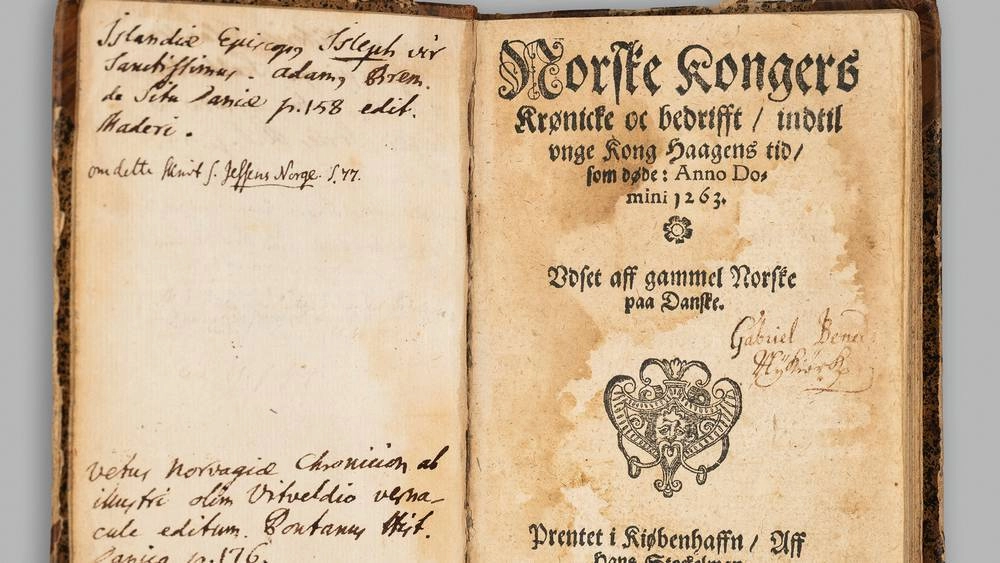 Islandiæ Episcopq Isleph vir
Sanctissimus. Adamq Brem.
de Situ Daniæ p. 158 edit.
Maderi.
om dette skrivt s. Jessens Norge. S. 77.
vetus norvagiæ Chronicion ab
illustri olim Vitveldio verna-
cule editum. Pontanus Hist.
Danica p. 176.
Norske Kongers
Krønicke oc bedrifft / indtil
vnge Kong Haagens tid /
som døde: Anno Do-
mini 1263.
Vdset aff gammel Norske
paa Danske.
Gabriel
Prentet i Kiøbenhaffn / Aff
Hans Stockelman